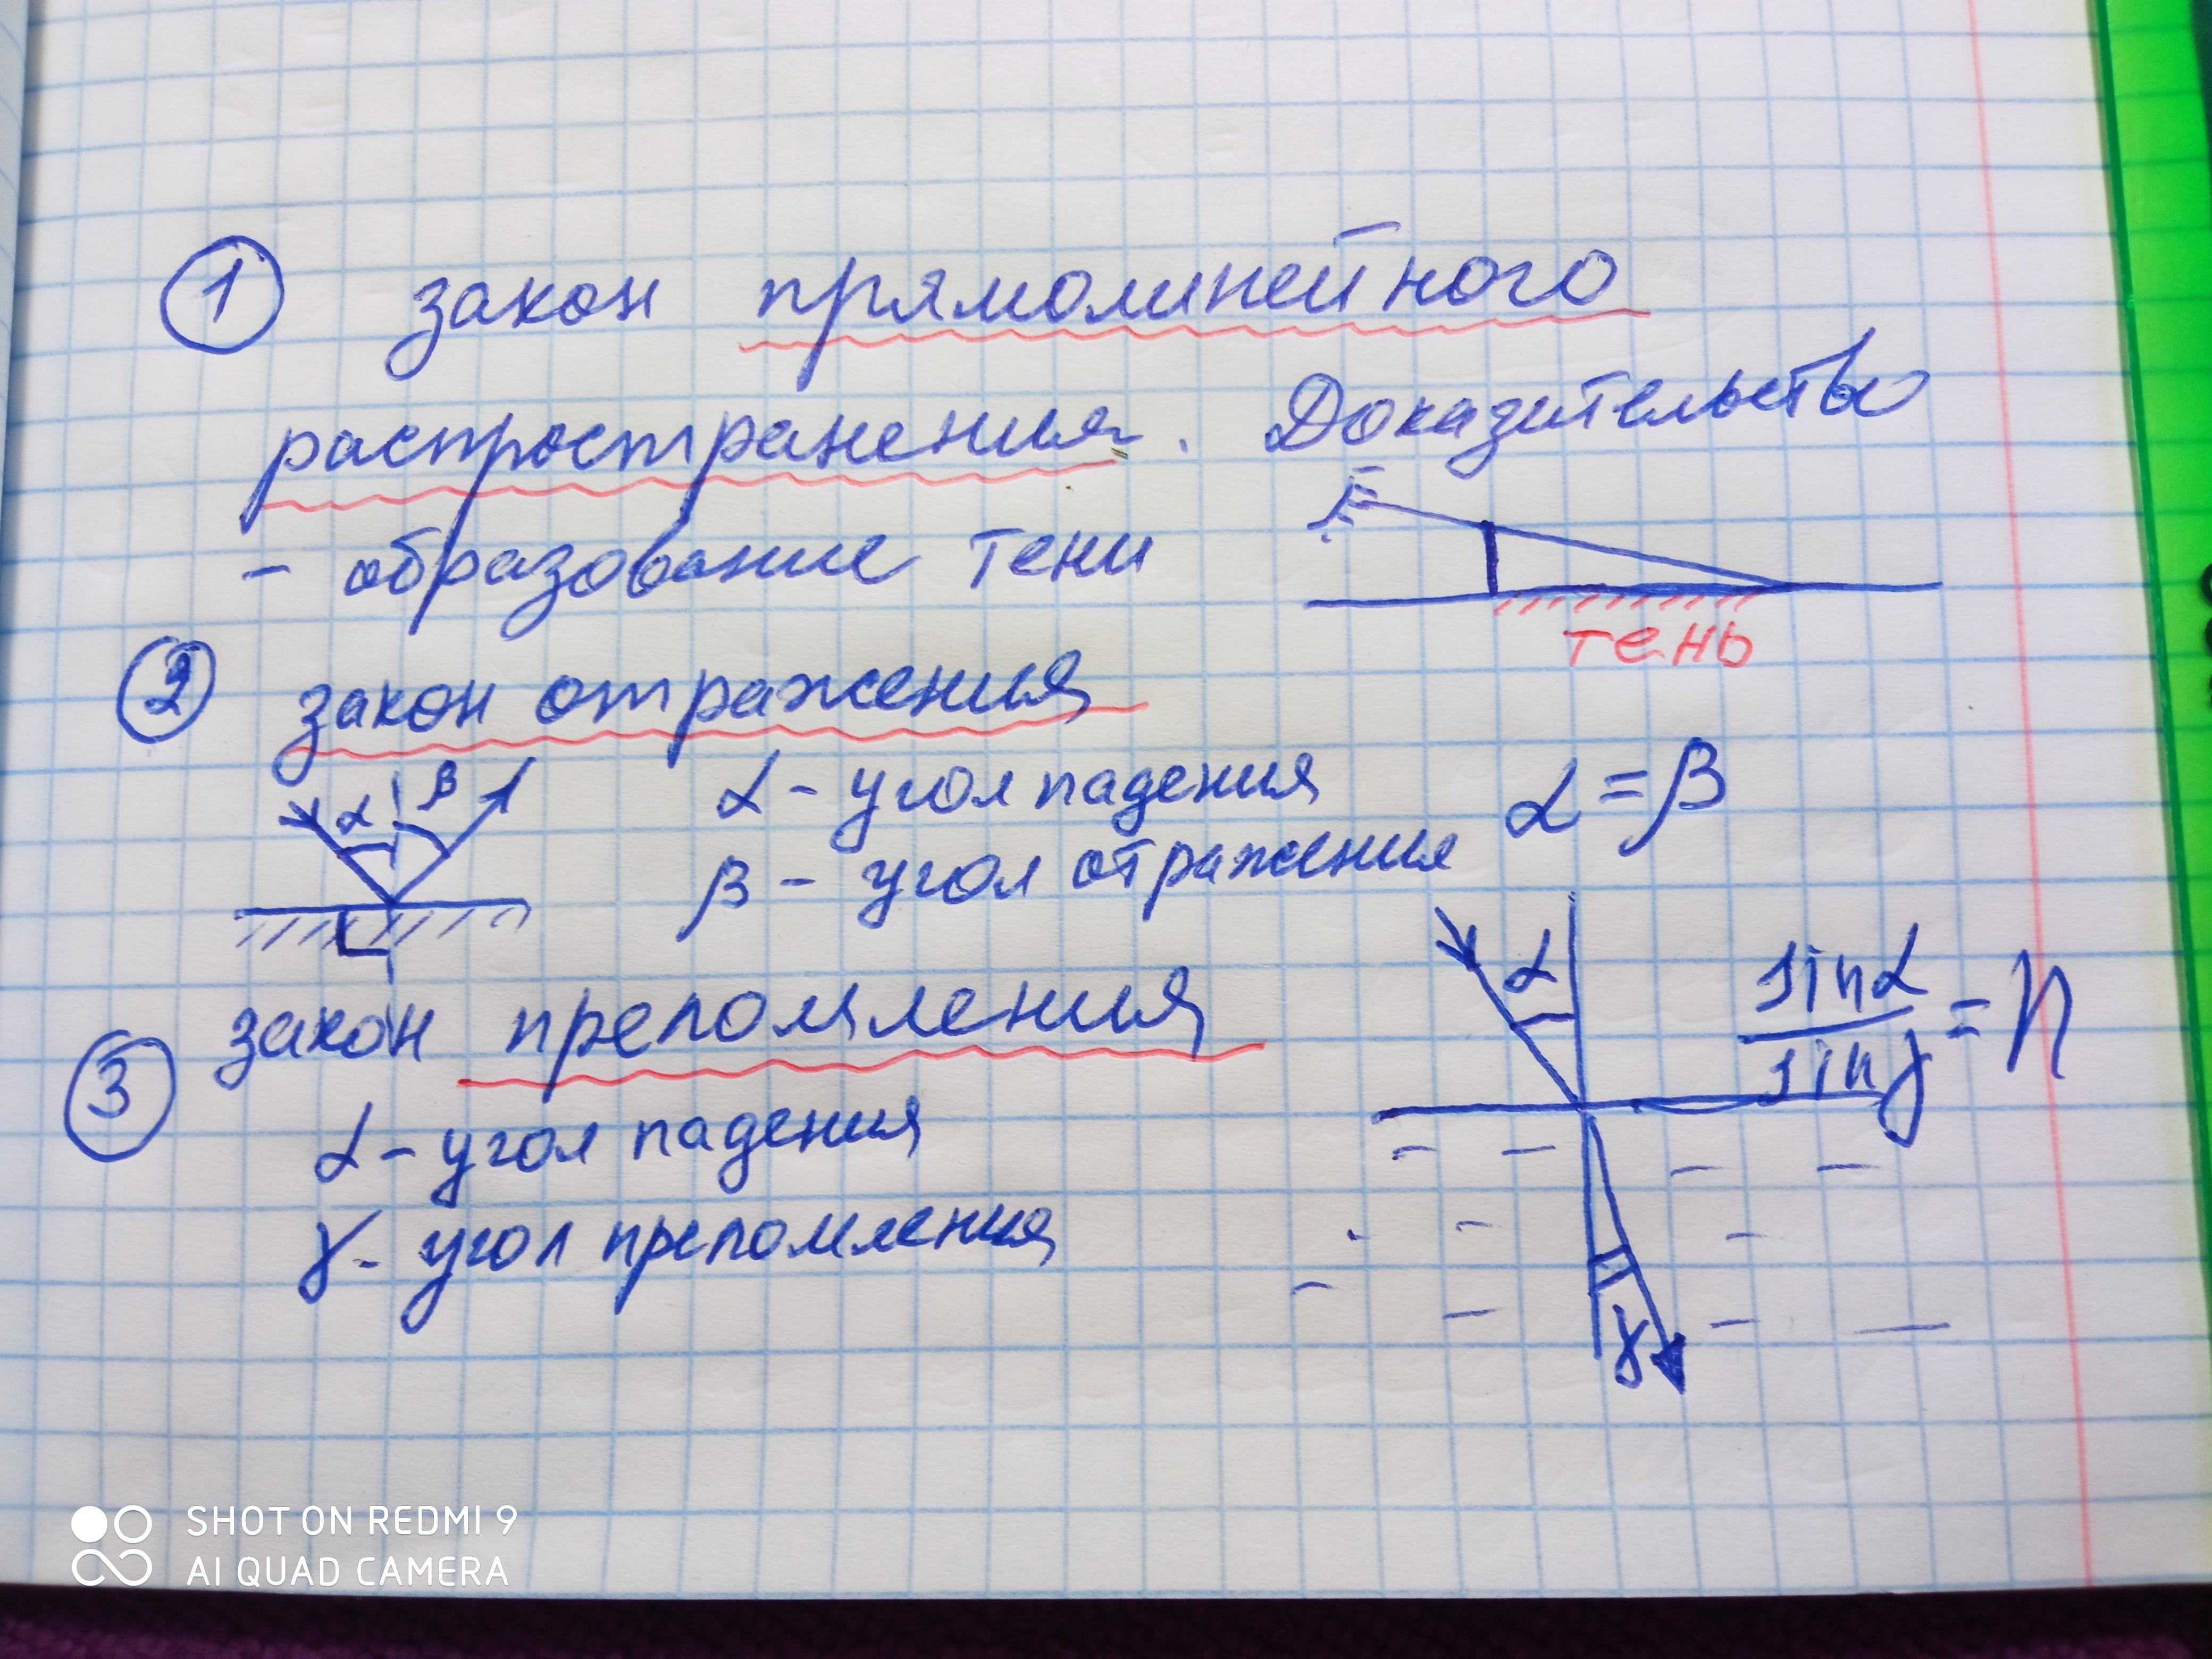 1 закон прямолинейного
распространения. Доказательство
- образование тени
тень
2 закон отражения
α β
α - угол падения α = β
β - угол отражения
3 закон преломления
α
sinα / sinγ = n
α - угол падения
γ - угол преломления
γ
SHOT ON REDMI 9
AI QUAD CAMERA